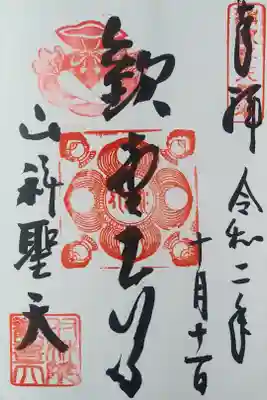 奉拝 令和二年
十月十一日
歓喜天尊
山科聖天